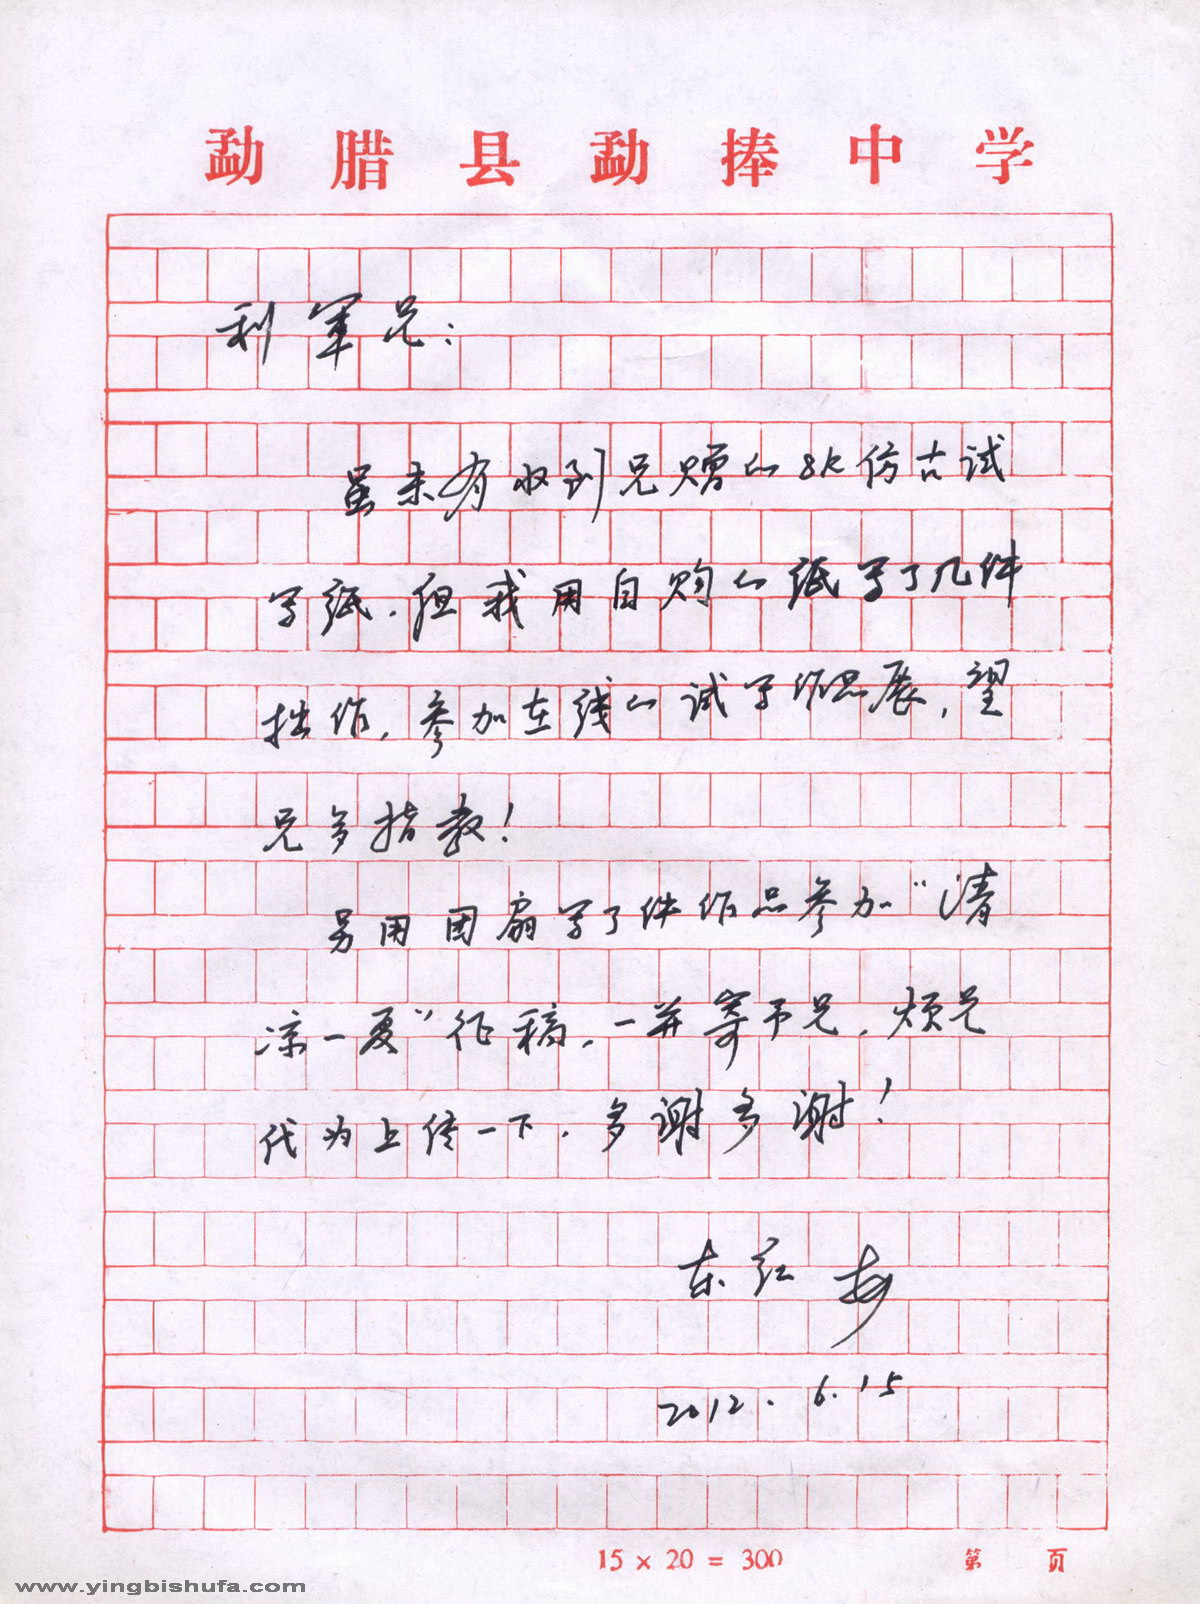 勐腊县勐捧中学
利军兄：
虽未有收到兄赠的8K仿古试
写纸，但我用自购的纸写了几件
拙作，参加在线的试写作品展，望
兄多指教！
另用团扇写了件作品参加“清
凉一夏”征稿，一并寄予兄，烦兄
代为上传一下，多谢多谢！
东红梅
2012.6.15
15×20=300 第 页
www.yingbishufa.com